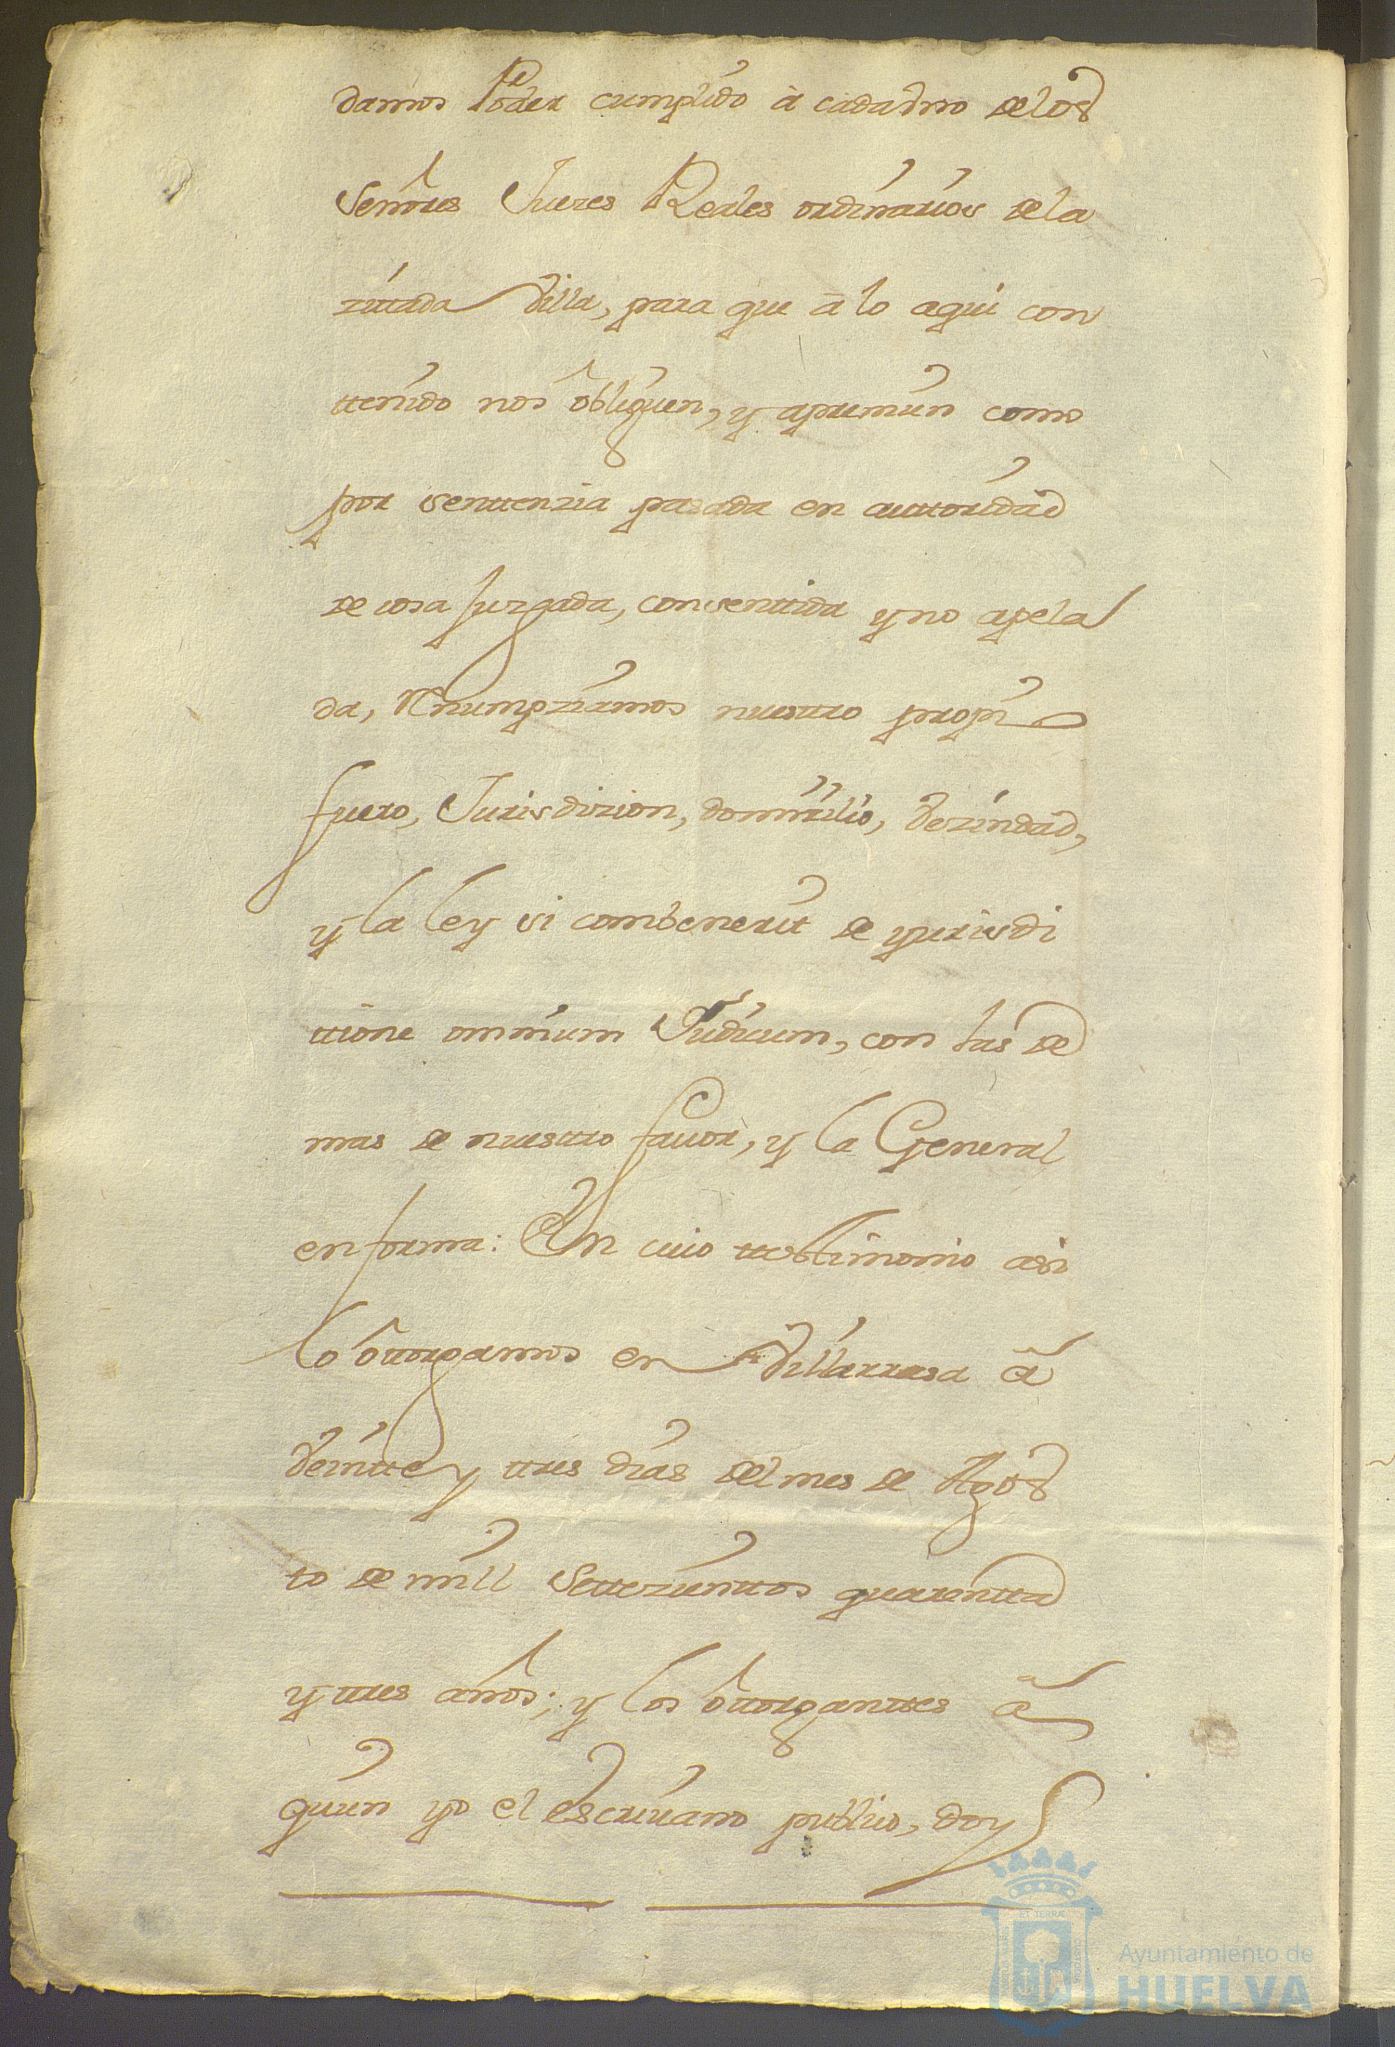 damos Poder cumplido à cada vno de los
Señores Juezes Reales ordinarios de la
zittada Villa, para que à lo aqui con
ttenido nos obliguen, y apremien como
por senttenzia pasada en auttoridad
de cosa juzgada, consenttida y no apela
da, Renumpziamos nuesttro propi
fuero, Jurisdizion, domizilio, vezindad,
y la ley si combenerit de yurisdi
ttione omnium Judicum, con las de
mas de nuesttro favor, y la General
en forma: En cuio ttestimonio asi
lo ottorgamos en Villarrasa à
veintte y ttres dias del mes de Agos
to de mill settezienttos quarentta
y ttres años; y los ottorganttes à
quien yo el escrivano publico, doy
Ayuntamiento de
HUELVA